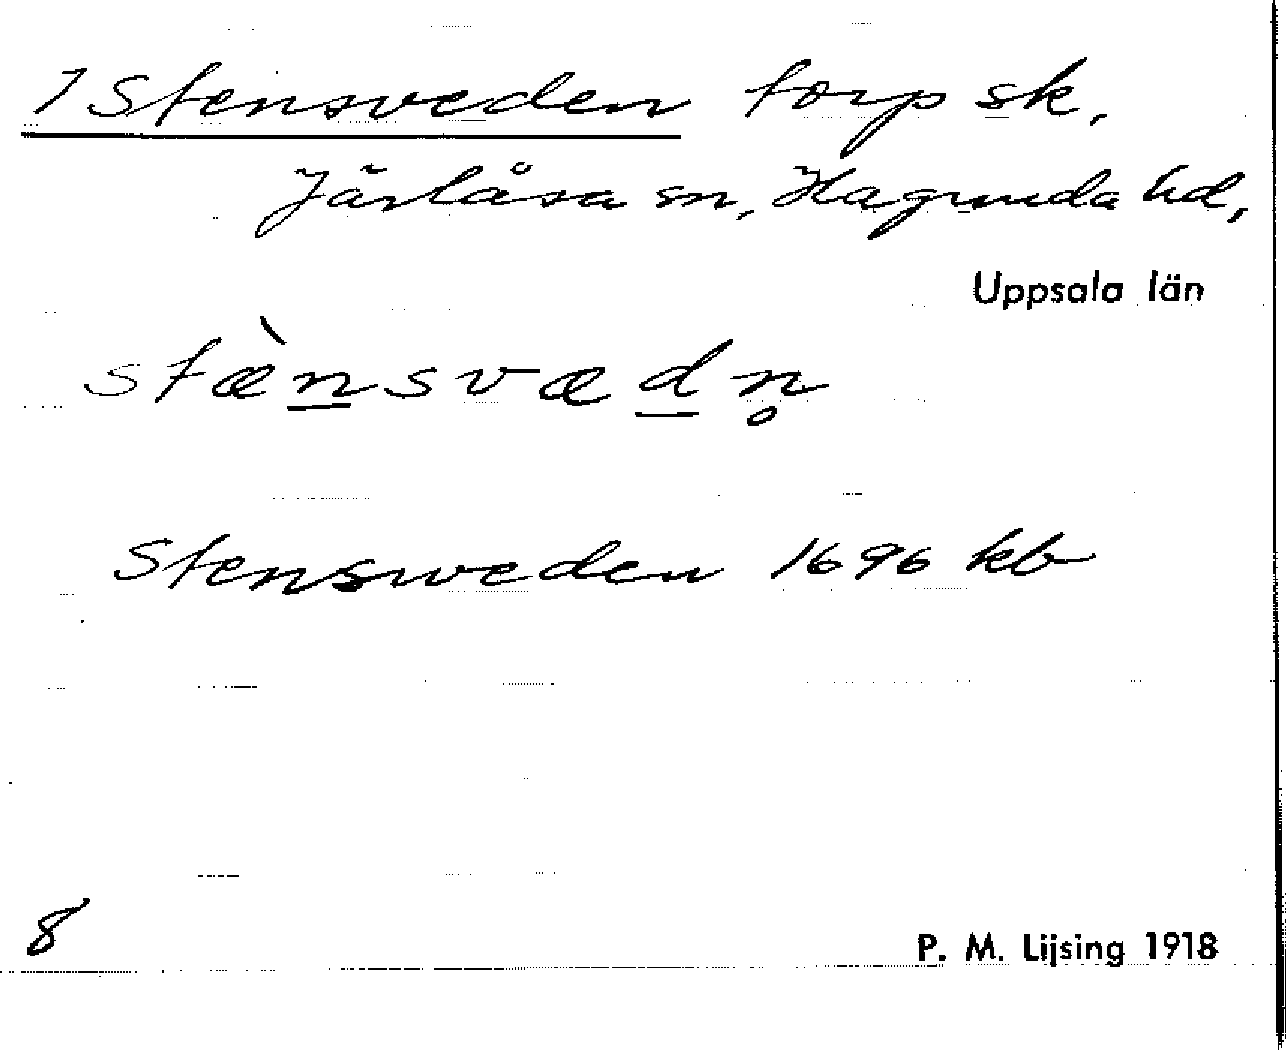 1 Stensveden torp sk.
Järlåsa sn, Hagunda hd,
Uppsala län
stæ̀n̲svæd̲n̥
Stensweden 1696 kb
8
P. M. Lijsing 1918